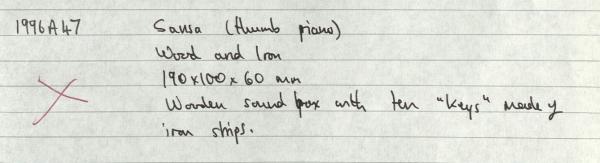 1996A47 Sansa (thumb piano)
Wood and Iron
190x100x60 mm
Wooden sound box with ten "keys" made of
iron strips.